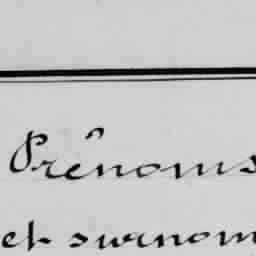 Prênoms
et surnom